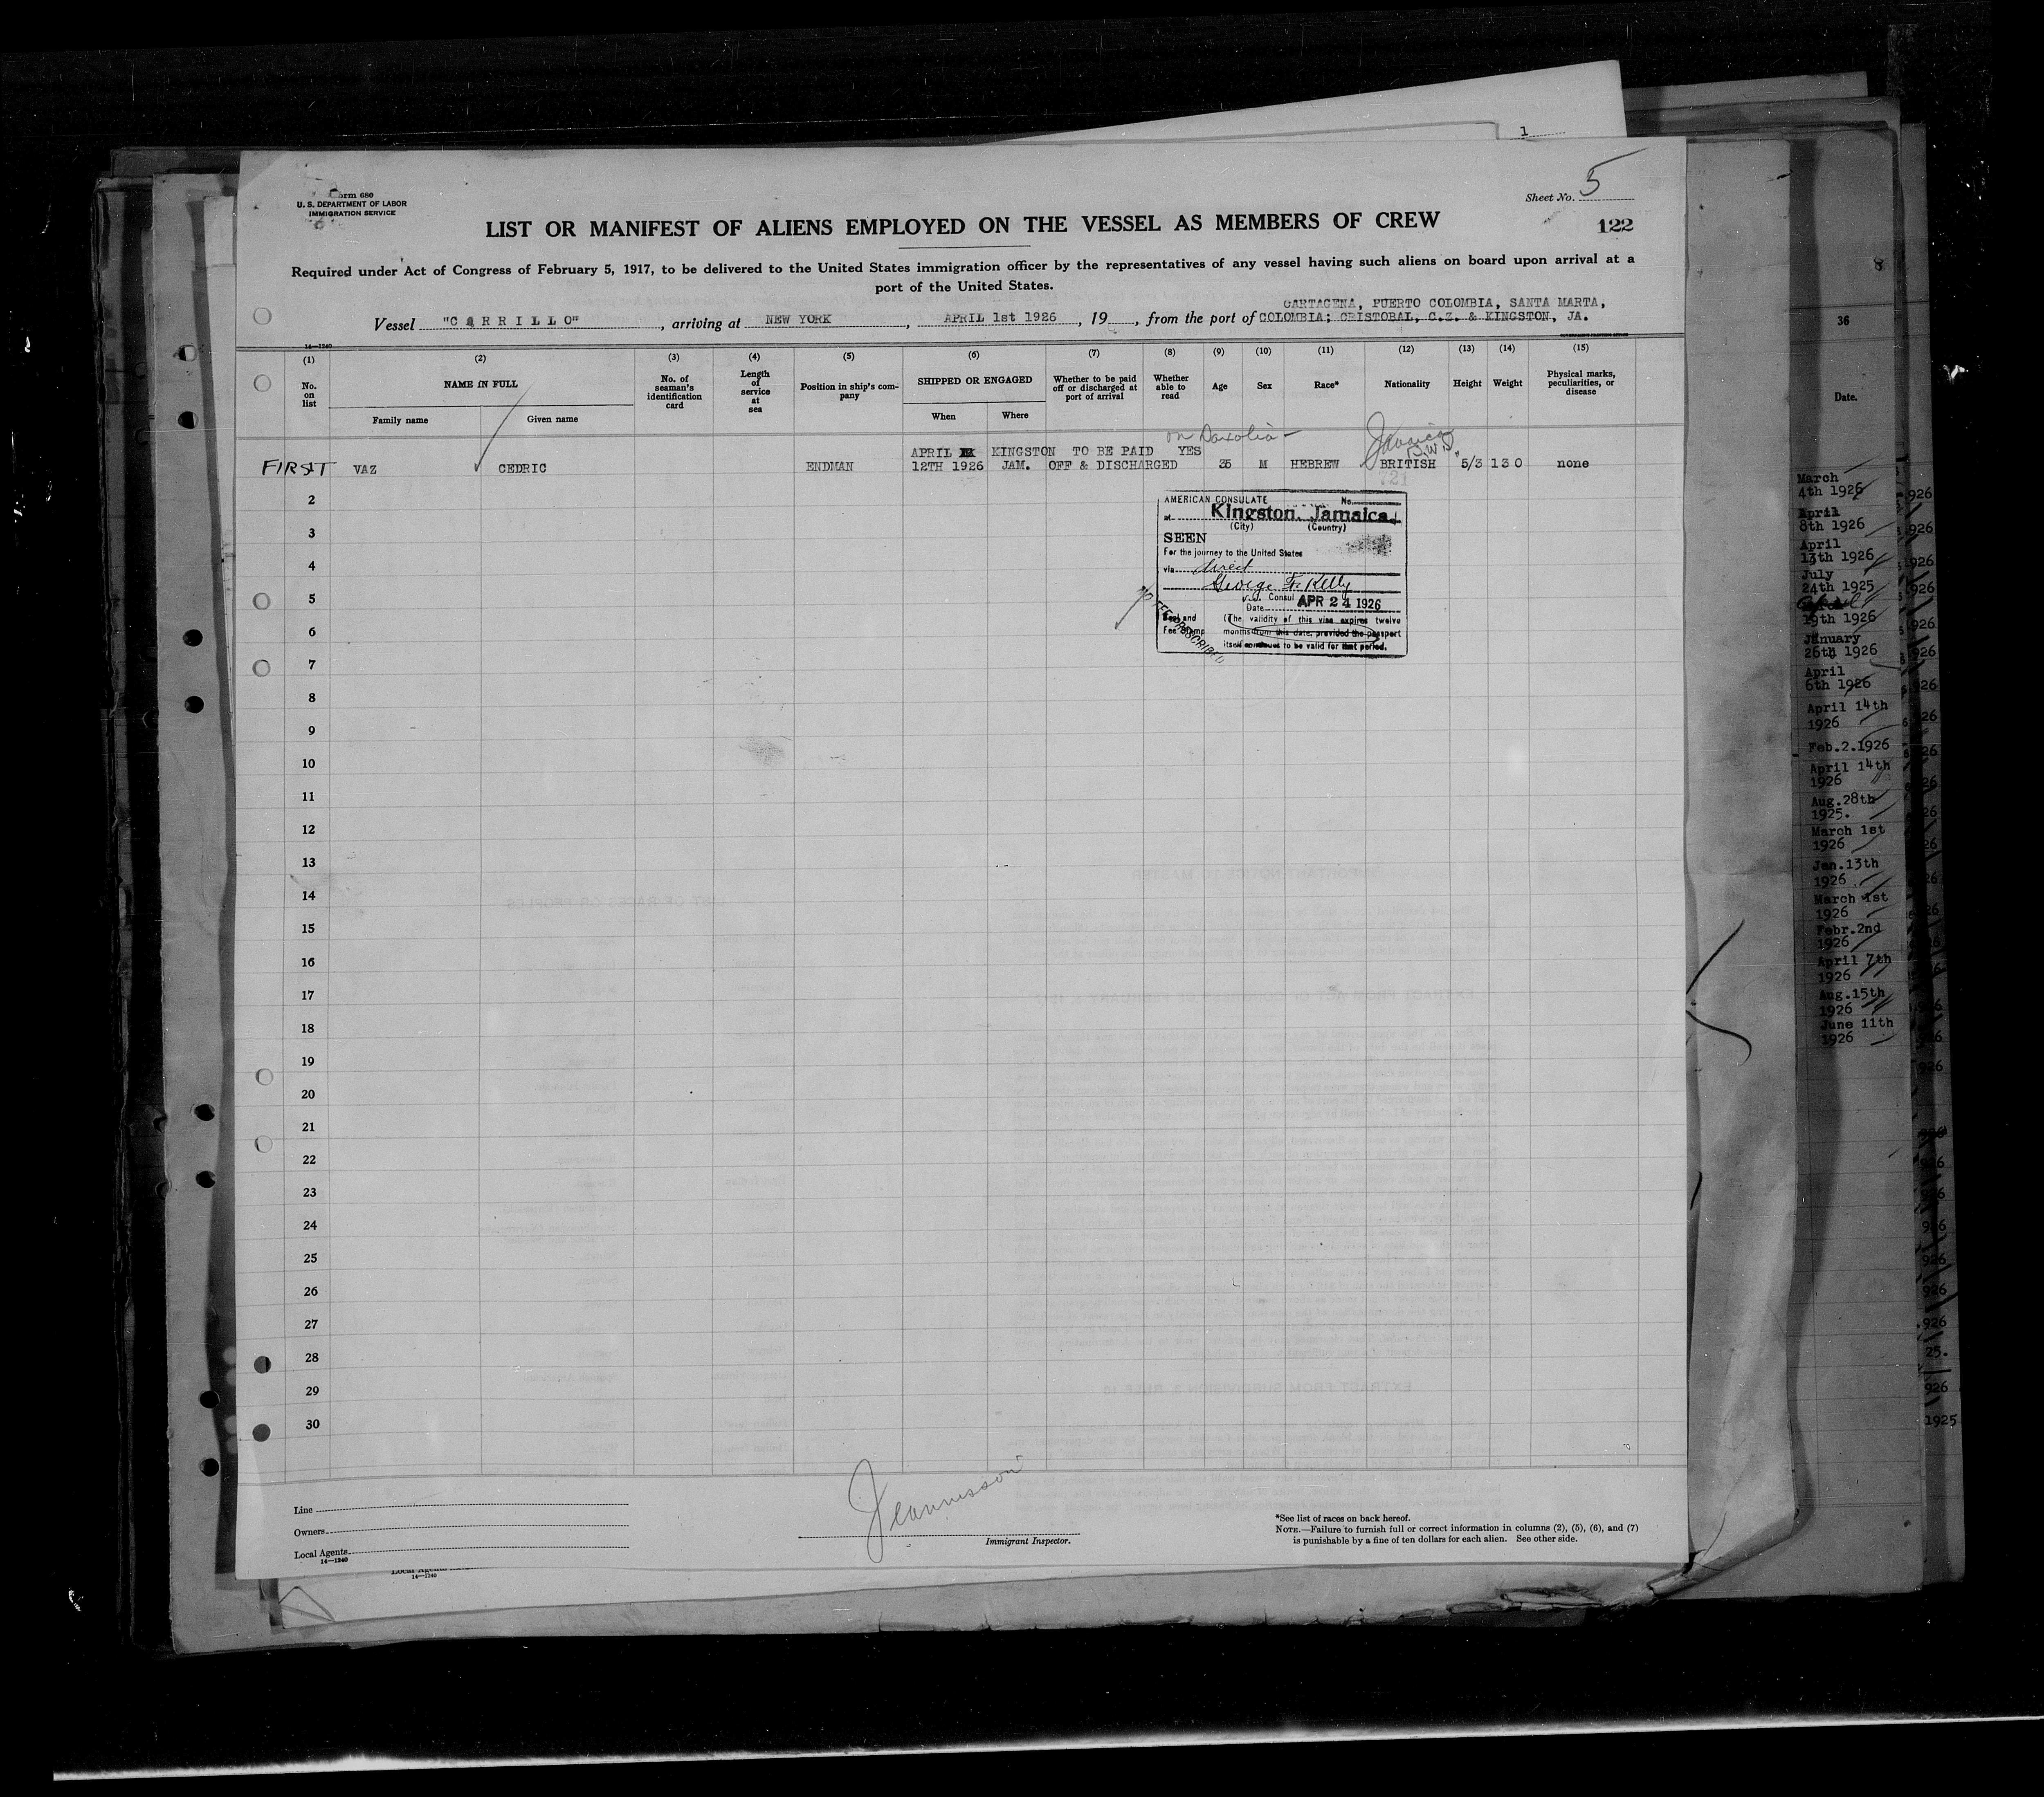 1
Form 680
U. S. DEPARTMENT OF LABOR
IMMIGRATION SERVICE
Sheet No. 5
122
LIST OR MANIFEST OF ALIENS EMPLOYED ON THE VESSEL AS MEMBERS OF CREW
Required under Act of Congress of February 5, 1917, to be delivered to the United States immigration officer by the representatives of any vessel having such aliens on board upon arrival at a
port of the United States.
CARTAGENA, PUERTO COLOMBIA, SANTA MARTA,
Vessel "CARRILLO", arriving at NEW YORK, APRIL 1st 1926, 19, from the port of COLOMBIA; CRISTOBAL, C.Z. & KINGSTON, JA.
14—1240
(1) (2) (3) (4) (5) (6) (7) (8) (9) (10) (11) (12) (13) (14) (15)
No. on list
NAME IN FULL
Family name
Given name
No. of seaman's identification card
Length of service at sea
Position in ship's company
SHIPPED OR ENGAGED
When
Where
Whether to be paid off or discharged at port of arrival
Whether able to read
Age
Sex
Race*
Nationality
Height
Weight
Physical marks, peculiarities, or disease
Jamaica
B.W.I.
APRIL KINGSTON TO BE PAID YES
FIRST VAZ CEDRIC ENDMAN 12TH 1926 JAM. OFF & DISCHARGED 35 M HEBREW BRITISH 5/3 130 none
AMERICAN CONSULATE No.
at Kingston, Jamaica.
(City) (Country)
SEEN
For the journey to the United States
via direct
George F. Kelly
V. Consul
Date APR 24 1926
NO FEE PRESCRIBED
Seal and
Fee Stamp
(The validity of this visa expires twelve
months from this date, provided the passport
itself continues to be valid for that period.
2
3
4
5
6
7
8
9
10
11
12
13
14
15
16
17
18
19
20
21
22
23
24
25
26
27
28
29
30
Line
Owners
Local Agents
14—1240
Immigrant Inspector.
*See list of races on back hereof.
NOTE.—Failure to furnish full or correct information in columns (2), (5), (6), and (7)
is punishable by a fine of ten dollars for each alien. See other side.
Local Agents
14—1240
8
36
Date.
March
4th 1926
April
8th 1926
April
13th 1926
July
24th 1925
19th 1926
January
26th 1926
April
6th 1926
April 14th
1926
Feb.2.1926
April 14th
1926
Aug.28th
1925.
March 1st
1926
Jan.13th
1926
March 1st
1926
Febr.2nd
1926
April 7th
1926
Aug.15th
1926
June 11th
1926
1925